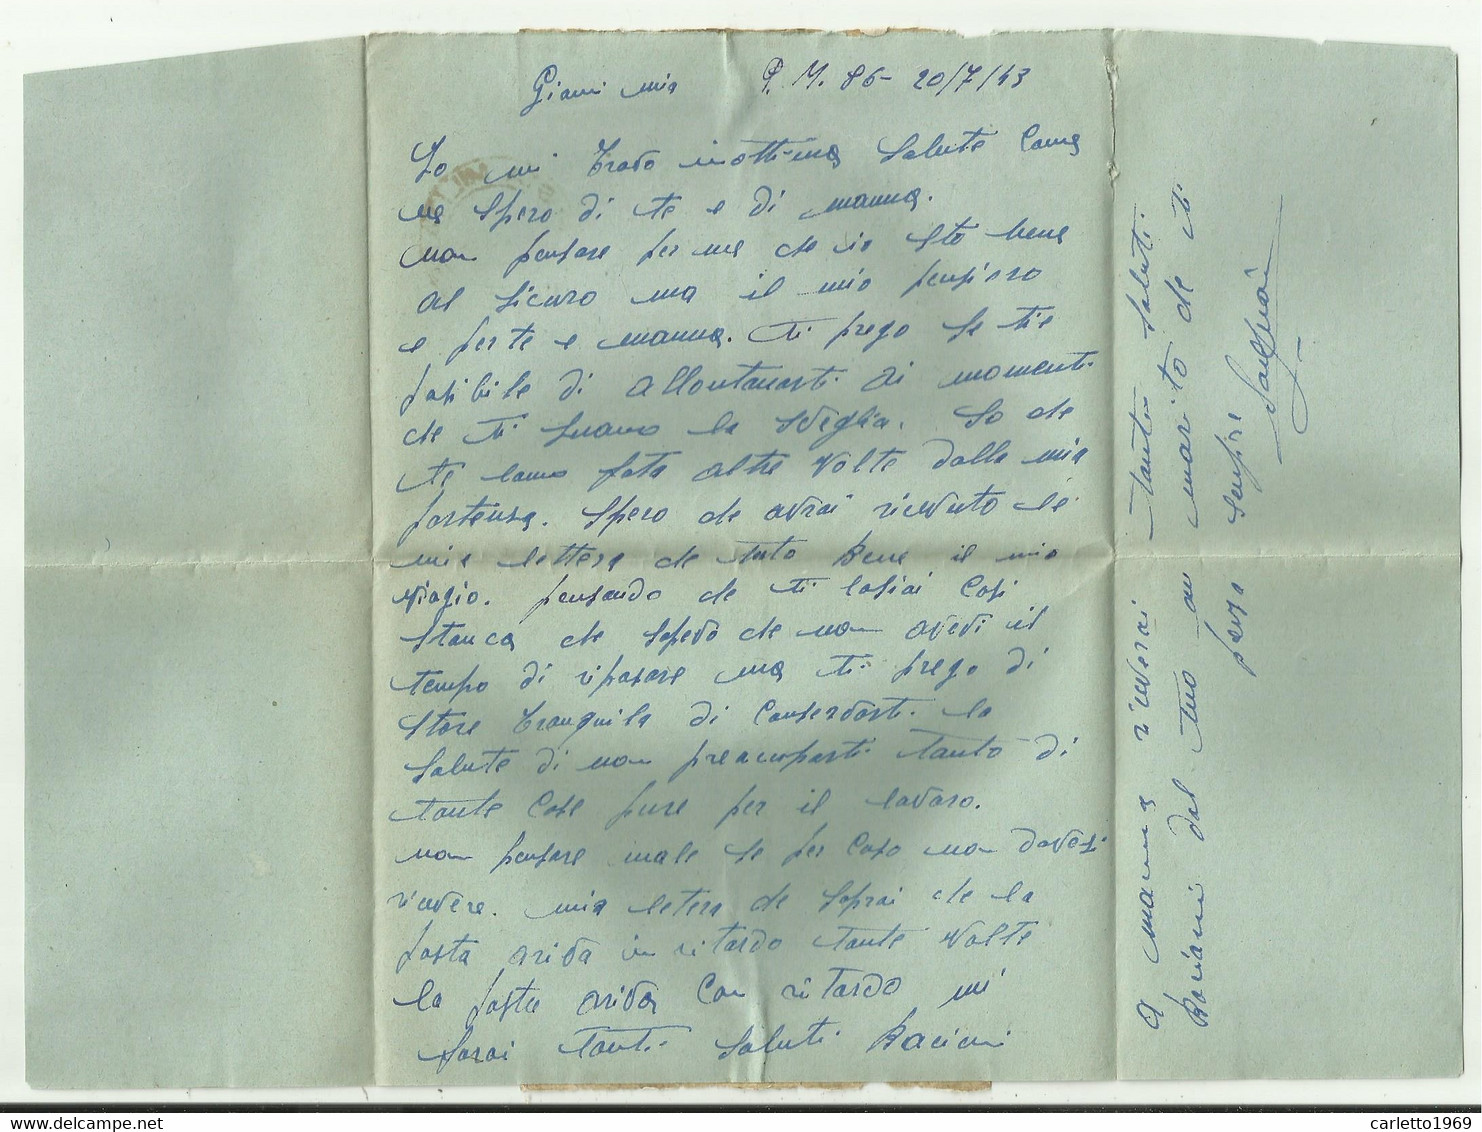 Gianni mia P. M. 86- 20/7/43
Io mi trovo inottima salute come
ne spero di te e di mamma.
non pensare per me che io sto bene
al sicuro ma il mio pensiero
e per te e mamma. ti prego se tie
posibile di allontanarti ai momenti
che ti suano la sveglia. So che
te lamo fata altre volte dalla mia
partensa. Spero che avrai ricevuto le
mia lettera che tuto bene il mio
viagio. pensando che ti lasiai così
stanca che sapevo che non avevi il
tempo di riposare ma ti prego di
stare tranquila di conservarti la
salute di non preacuparti tanto di
tante cose pure per il lavoro.
non pensare male se per caso non dovesi
ricevere. mia letera che saprai che la
posta ariva in ritardo tante volte
la posta ariva con ritardo mi
farai tanti saluti baciani
A mamma riceverai tanti saluti.
Baciani dal tuo marito che ti
pensa sempre